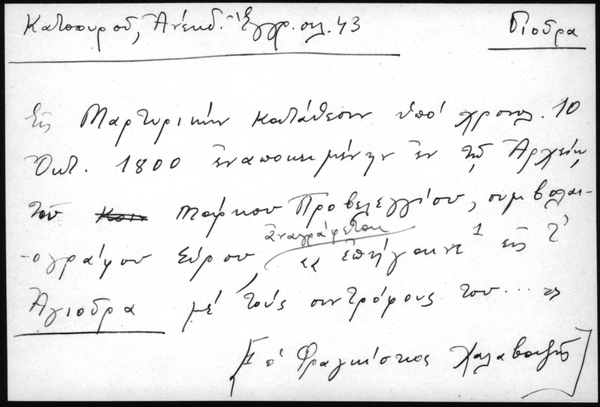 Κατσουροῦ, Ἀνέκδ. Ἔγγρ. σελ. 43
Γιοδρα
Εἰς Μαρτυρικήν κατάθεσιν ὑπό χρονολ. 10
Ὀκτ. 1800 ἐναποκειμένην ἐν τῷ Ἀρχείῳ
τοῦ Μάρκου Προβελεγγίου, συμβολαι-
-ογράφου Σύρου ἀναγράφεται "ἐπήγαινε 1 εἰς τ'
Ἀγιοδρα μέ τούς συντρόφους του ... "
[1 ὁ Φραγκίσκος Χαλαβαζῆς]